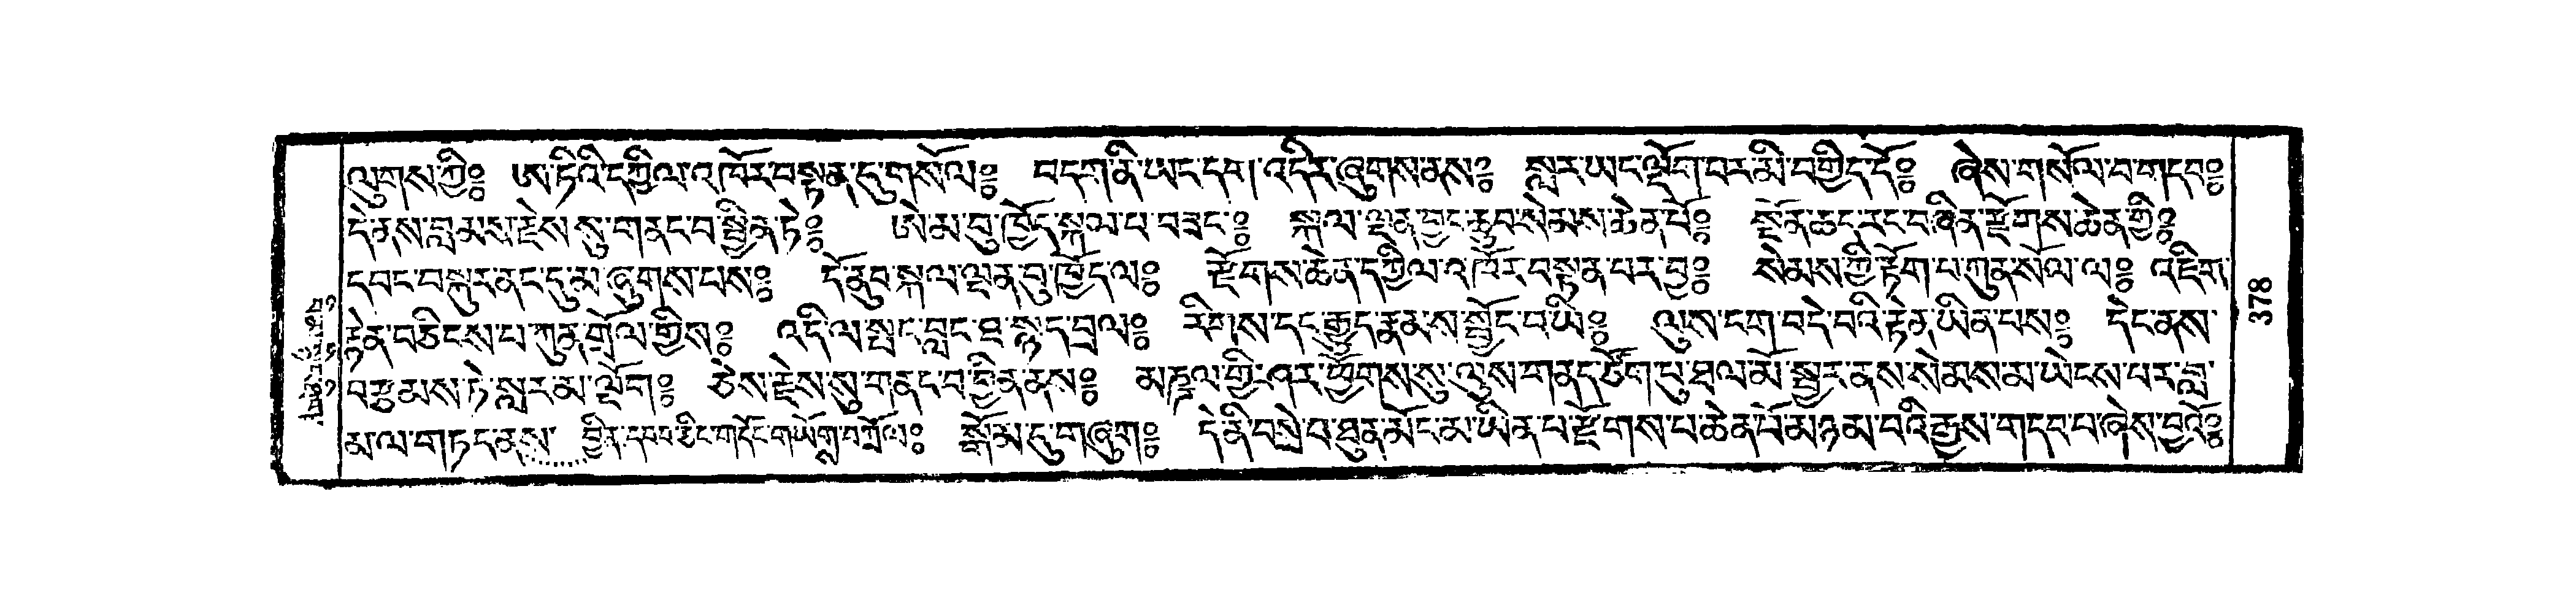 ལུགས་ཀྱི༔ ཨ་ཏིའི་དཀྱིལ་འཁོར་བསྟན་དུ་གསོལ༔ བདག་ནི་ཡང་དག་འདིར་ཞུགས་ནས༔ སླར་ཡང་ལྡོག་པར་མི་བགྱིད་དོ༔ ཞེས་གསོལ་བ་གདབ༔
དེ་ནས་བླ་མས་རྗེས་སུ་གནང་བ་སྦྱིན་ཏེ༔ ཨེ་མ་བུ་ཁྱོད་སྐལ་པ་བཟང་༔ སྐལ་ལྡན་བྱང་ཆུབ་སེམས་ཆེན་པོ༔ སྔོན་ཆད་རང་བཞིན་རྫོགས་ཆེན་གྱི༔
དབང་བསྐུར་ནང་དུ་མ་ཞུགས་པས༔ དོ་ནུབ་སྐལ་ལྡན་བུ་ཁྱོད་ལ༔ རྫོགས་ཆེན་དཀྱིལ་འཁོར་བསྟན་པར་བྱ༔ སེམས་ཀྱི་རྟོག་པ་ཀུན་སོལ་ལ༔ འཇིག་
རྟེན་བཅིངས་པ་ཀུན་གྲོལ་གྱིས༔ འདི་ལ་སྤང་བླང་ཐ་སྙད་བྲལ༔ རིགས་དང་རྒྱུད་རྣམས་སྤྱོང་བ་ཡི༔ ལུས་ངག་བདེ་བའི་རྟེན་ཡིན་པས༔ དེང་ནས་
བརྩམས་ཏེ་སླར་མ་ལྡོག༔ ཅེས་རྗེས་སུ་གནང་བ་བྱིན་ནས༔ མཎྜལ་གྱི་ཤར་ཕྱོགས་སུ་ལུས་གནད་ཙོག་པུ་ཐལ་མོ་སྦྱར་ནས་སེམས་མ་ཡེངས་པར་བླ་
མ་ལ་གཏད་ནས་ བྱིན་དབབ་ཅིང་གདོང་གཡོག་བཀྲོལ༔ སྒོམ་དུ་གཞུག༔ དེ་ནི་བསྲེ་བ་ཐུན་མོང་མ་ཡིན་པ་རྫོགས་པ་ཆེན་པོ་མཉམ་བའི་རྒྱས་གདབ་པ་ཞེས་བྱའོ༔
873